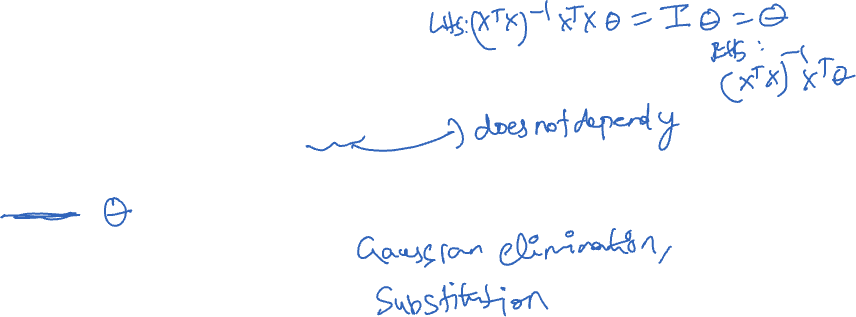 LHS: (XᵀX)⁻¹ XᵀX θ = I θ = θ
RHS:
(XᵀX)⁻¹ Xᵀθ
does not depend y
θ
Gaussian elimination,
Substitution